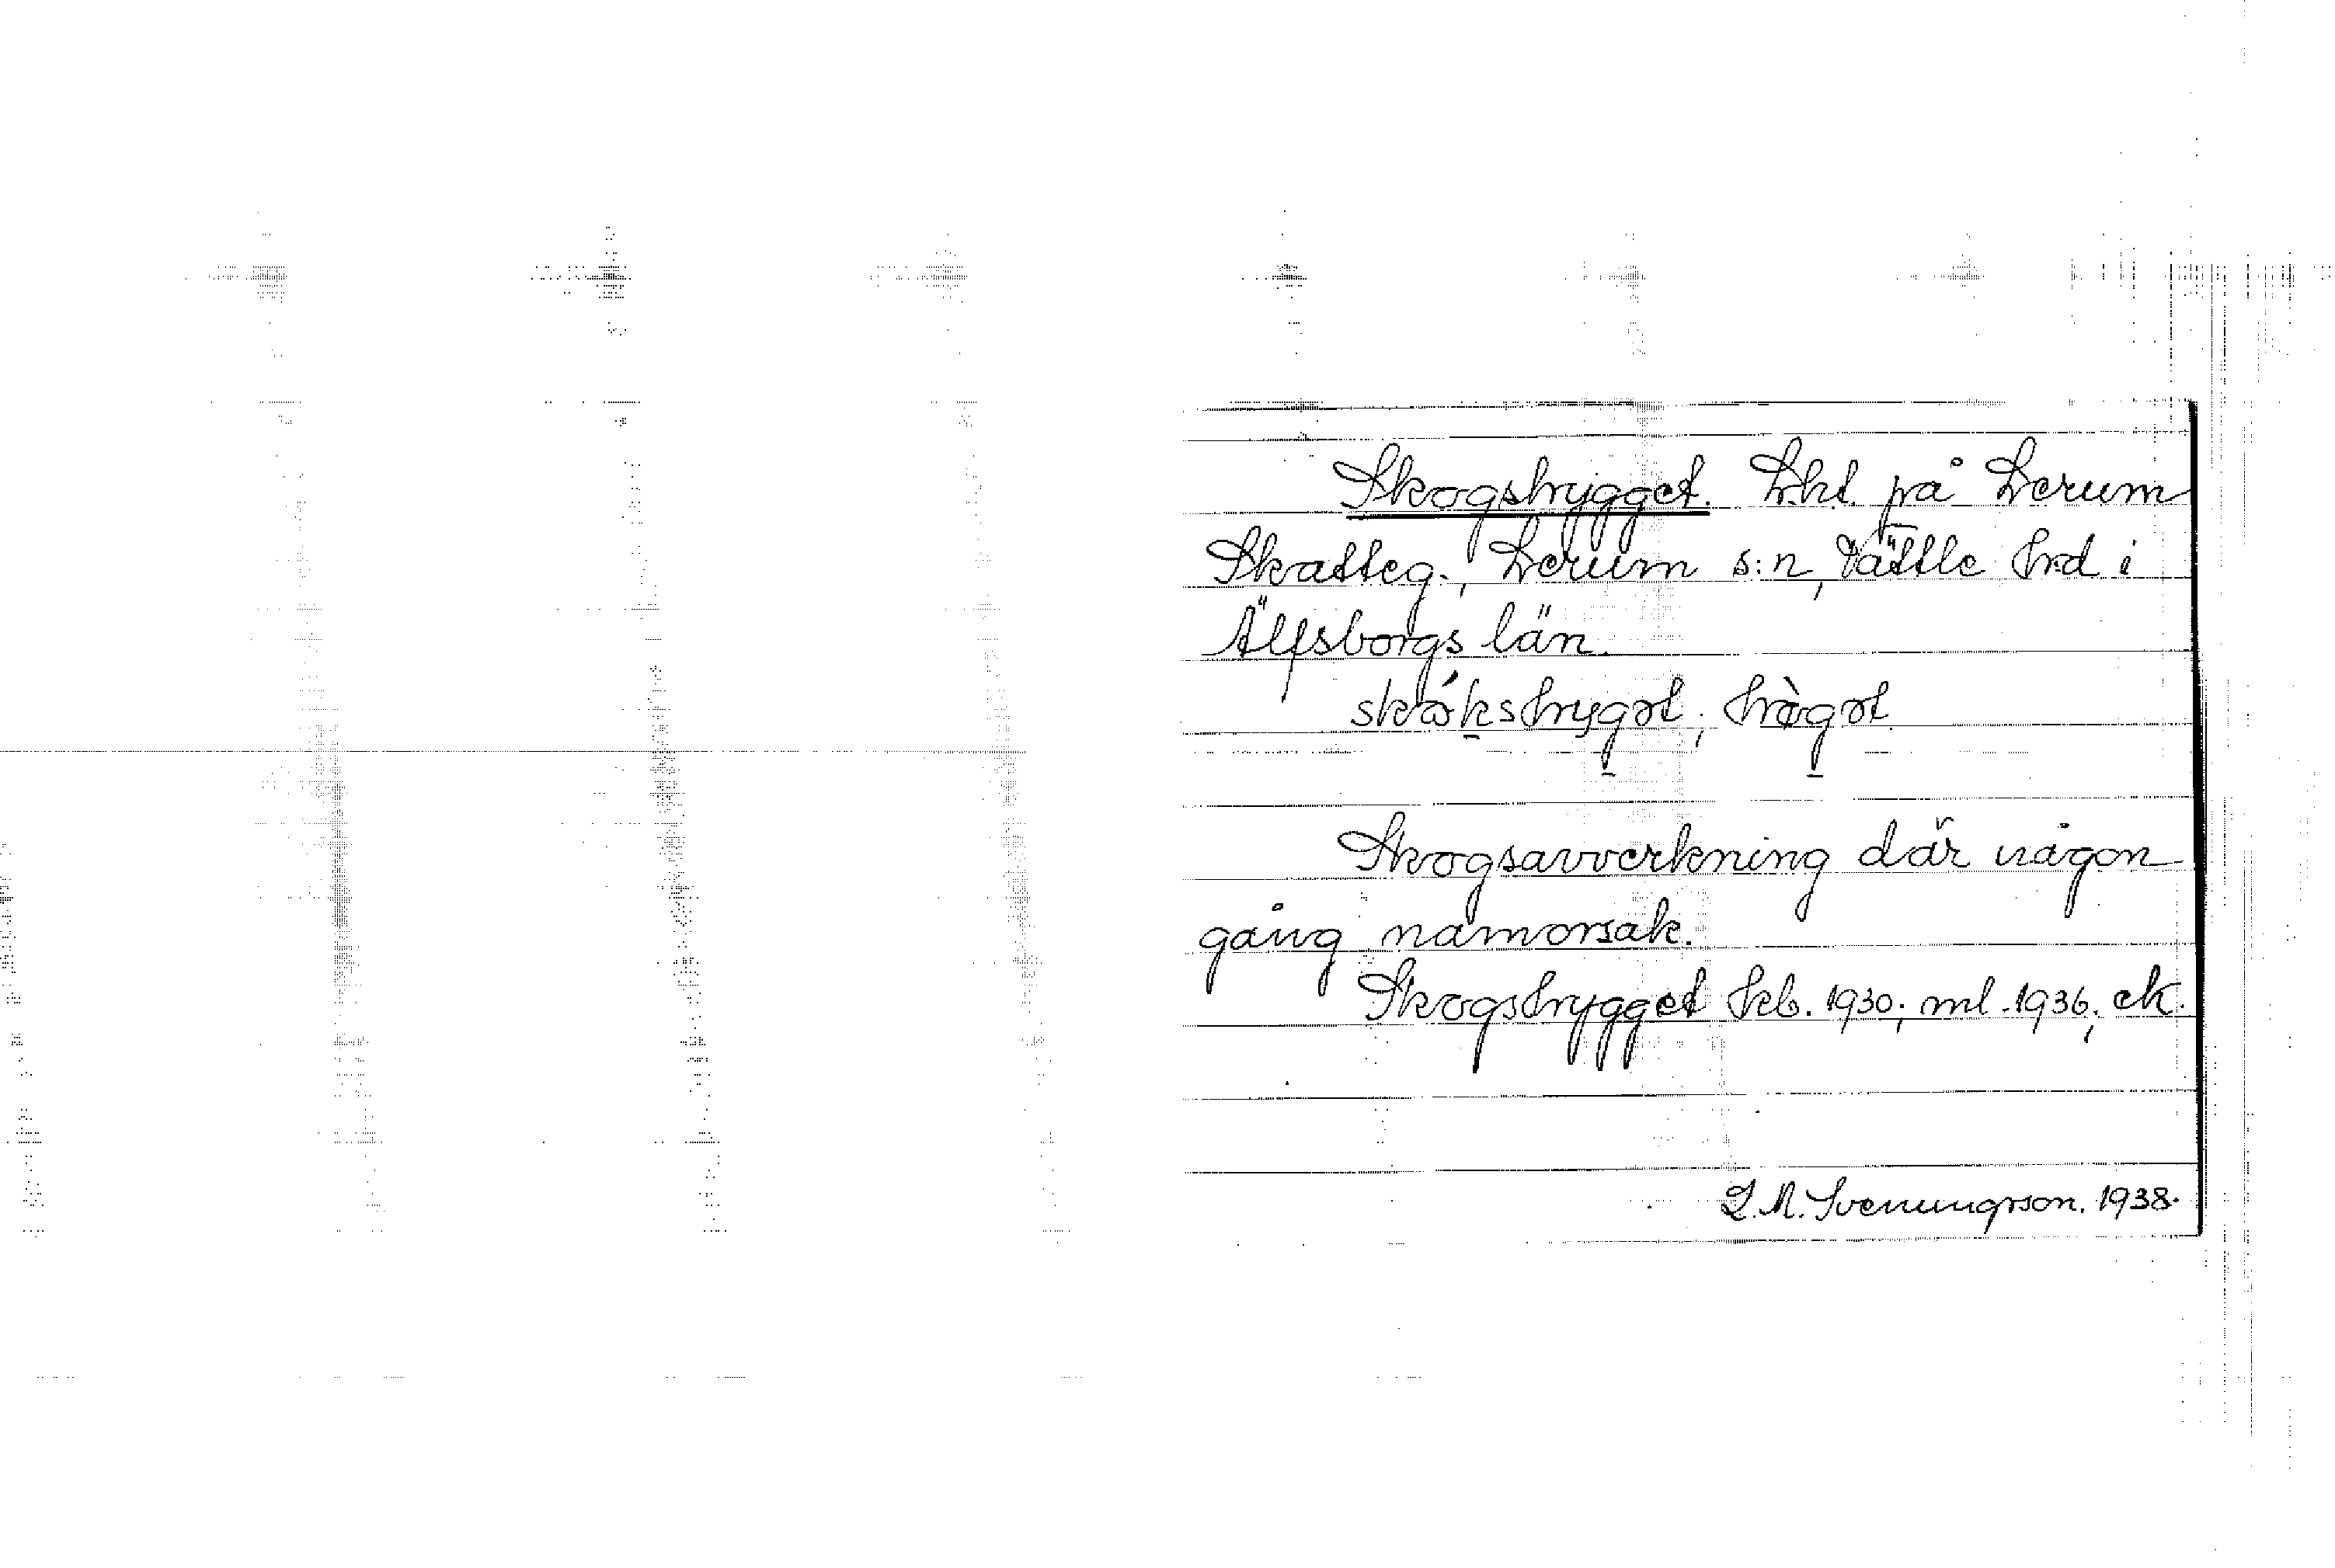 Skogshygget. Lht. på Lerum
Skatteg., Lerum s:n, Vättle hrd i
Älfsborgs län.
Skogsavverkning där någon
gång namorsak.
Skogshygget kb. 1930; ml. 1936; ek.
L.A. Svenungsson. 1938.